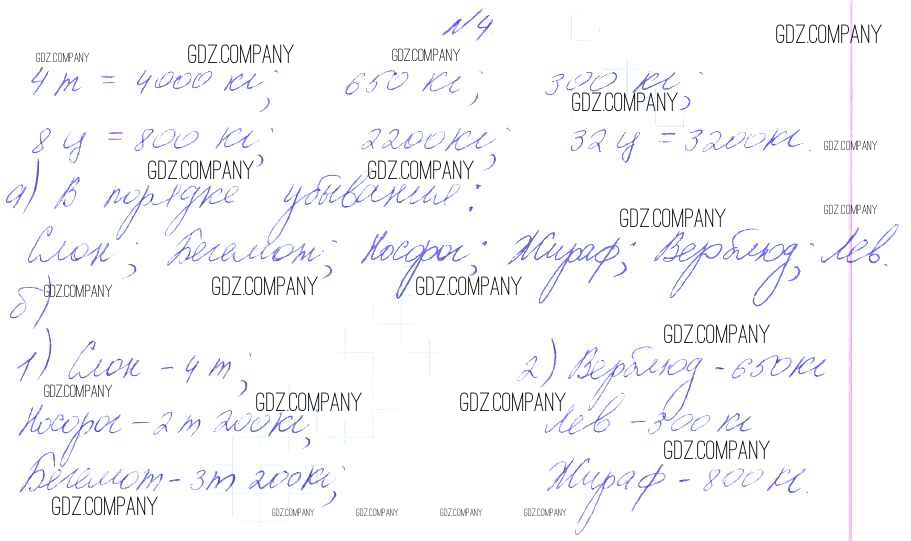 №4
GDZ.COMPANY GDZ.COMPANY GDZ.COMPANY GDZ.COMPANY
4 т = 4000 кг; 650 кг; 300 кг;
GDZ.COMPANY
8 ц = 800 кг; 2200 кг; 32 ц = 3200 кг.
GDZ.COMPANY GDZ.COMPANY GDZ.COMPANY
а) В порядке убывания:
GDZ.COMPANY GDZ.COMPANY
Слон; Бегемот; Носорог; Жираф; Верблюд; Лев.
GDZ.COMPANY GDZ.COMPANY GDZ.COMPANY
б)
GDZ.COMPANY
1) Слон – 4 т; 2) Верблюд – 650 кг
GDZ.COMPANY GDZ.COMPANY GDZ.COMPANY
Носорог – 2 т 200 кг; Лев – 300 кг
GDZ.COMPANY
Бегемот – 3 т 200 кг; Жираф – 800 кг.
GDZ.COMPANY GDZ.COMPANY GDZ.COMPANY GDZ.COMPANY GDZ.COMPANY